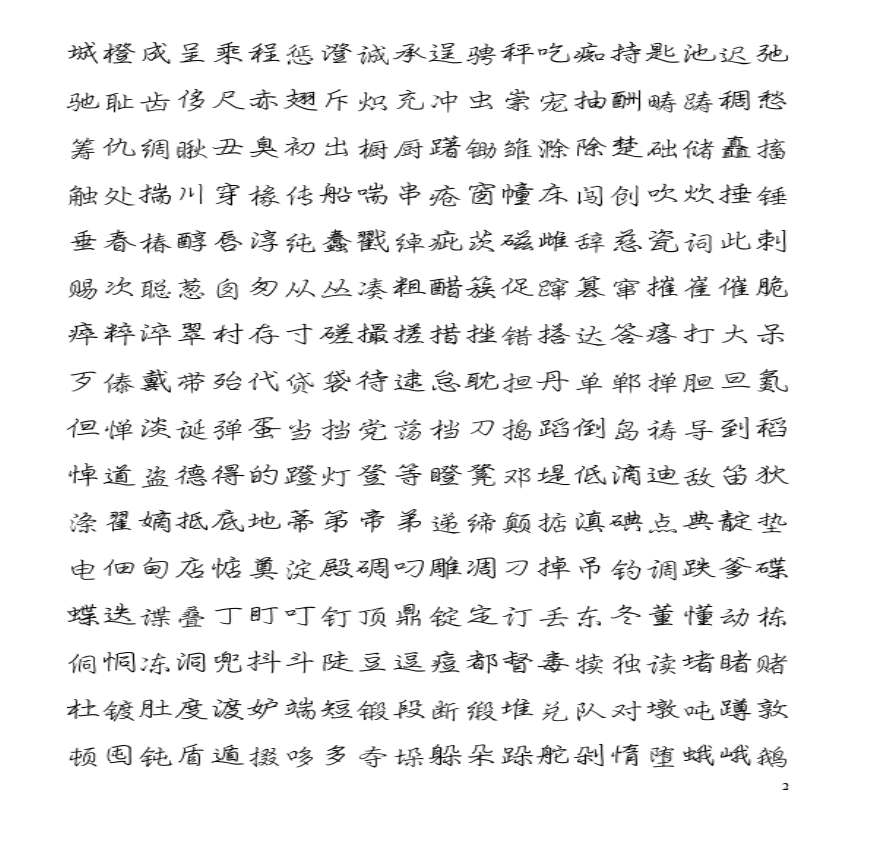 城橙成呈乘程惩澄诚承逞骋秤吃痴持匙池迟弛
驰耻齿侈尺赤翅斥炽充冲虫崇宠抽酬畴踌稠愁
筹仇绸瞅丑臭初出橱厨躇锄雏滁除楚础储矗搐
触处揣川穿椽传船喘串疮窗幢床闯创吹炊捶锤
垂春椿醇唇淳纯蠢戳绰疵茨磁雌辞慈瓷词此刺
赐次聪葱囱匆从丛凑粗醋簇促蹿篡窜摧崔催脆
瘁粹淬翠村存寸磋撮搓措挫错搭达答瘩打大呆
歹傣戴带殆代贷袋待逮怠耽担丹单郸掸胆旦氮
但惮淡诞弹蛋当挡党荡档刀捣蹈倒岛祷导到稻
悼道盗德得的蹬灯登等瞪凳邓堤低滴迪敌笛狄
涤翟嫡抵底地蒂第帝弟递缔颠掂滇碘点典靛垫
电佃甸店惦奠淀殿碉叼雕凋刁掉吊钓调跌爹碟
蝶迭谍叠丁盯叮钉顶鼎锭定订丢东冬董懂动栋
侗恫冻洞兜抖斗陡豆逗痘都督毒犊独读堵睹赌
杜镀肚度渡妒端短锻段断缎堆兑队对墩吨蹲敦
顿囤钝盾遁掇哆多夺垛躲朵跺舵剁惰堕蛾峨鹅
2